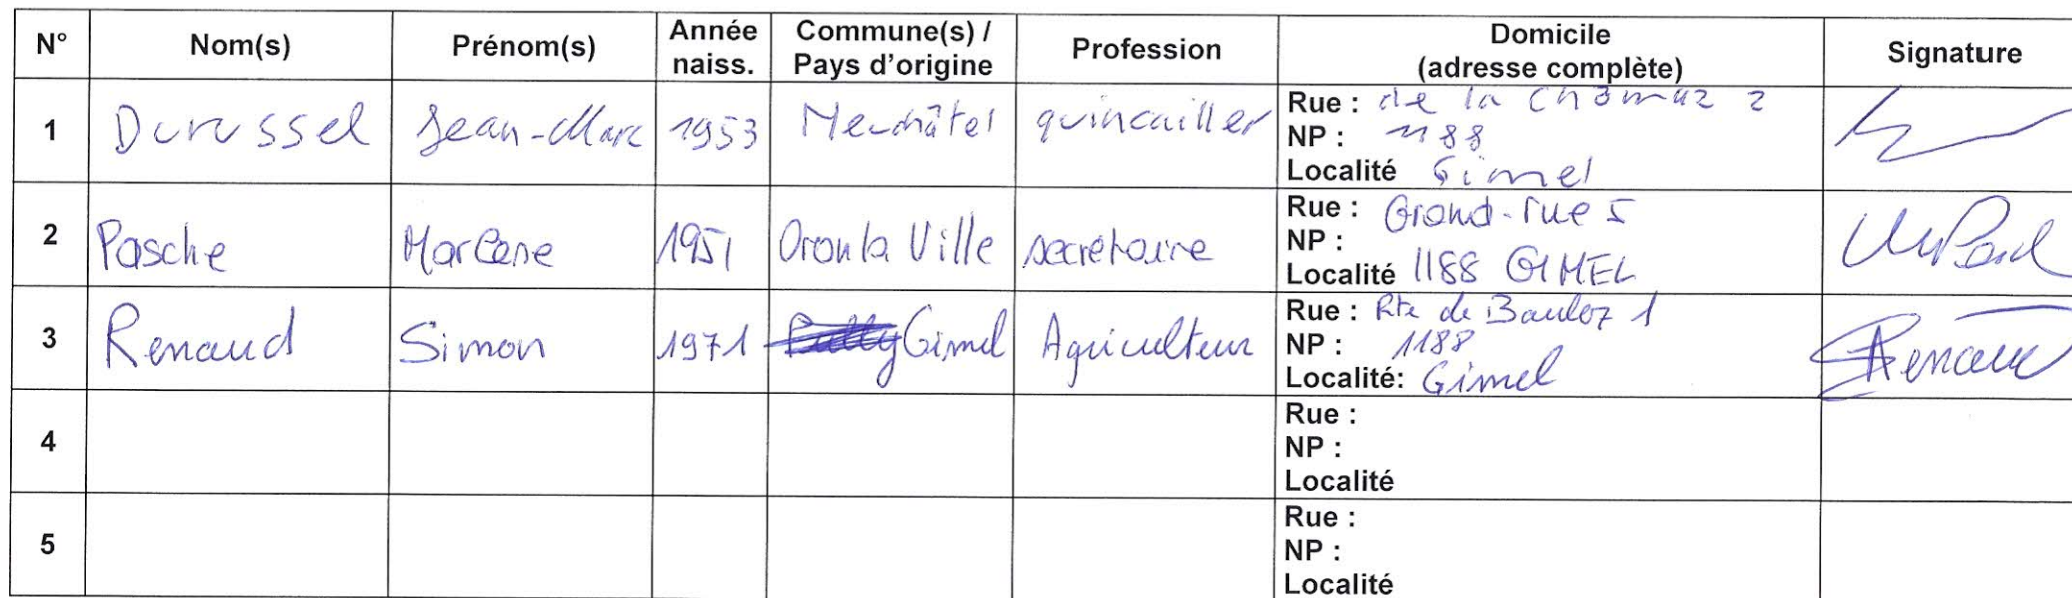 N° Nom(s) Prénom(s) Année naiss. Commune(s) / Pays d'origine Profession Domicile (adresse complète) Signature
1 Durussel Jean-Marc 1953 Neuchâtel quincailler Rue : de la Chômaz 2
NP : 1188
Localité Gimel
2 Pasche Marlène 1951 Oron la Ville secrétaire Rue : Grand-rue 5
NP :
Localité 1188 GIMEL
3 Renaud Simon 1971 Gimel Agriculteur Rue : Rte de Bauloz 1
NP : 1188
Localité: Gimel
Renaud
4 Rue :
NP :
Localité
5 Rue :
NP :
Localité